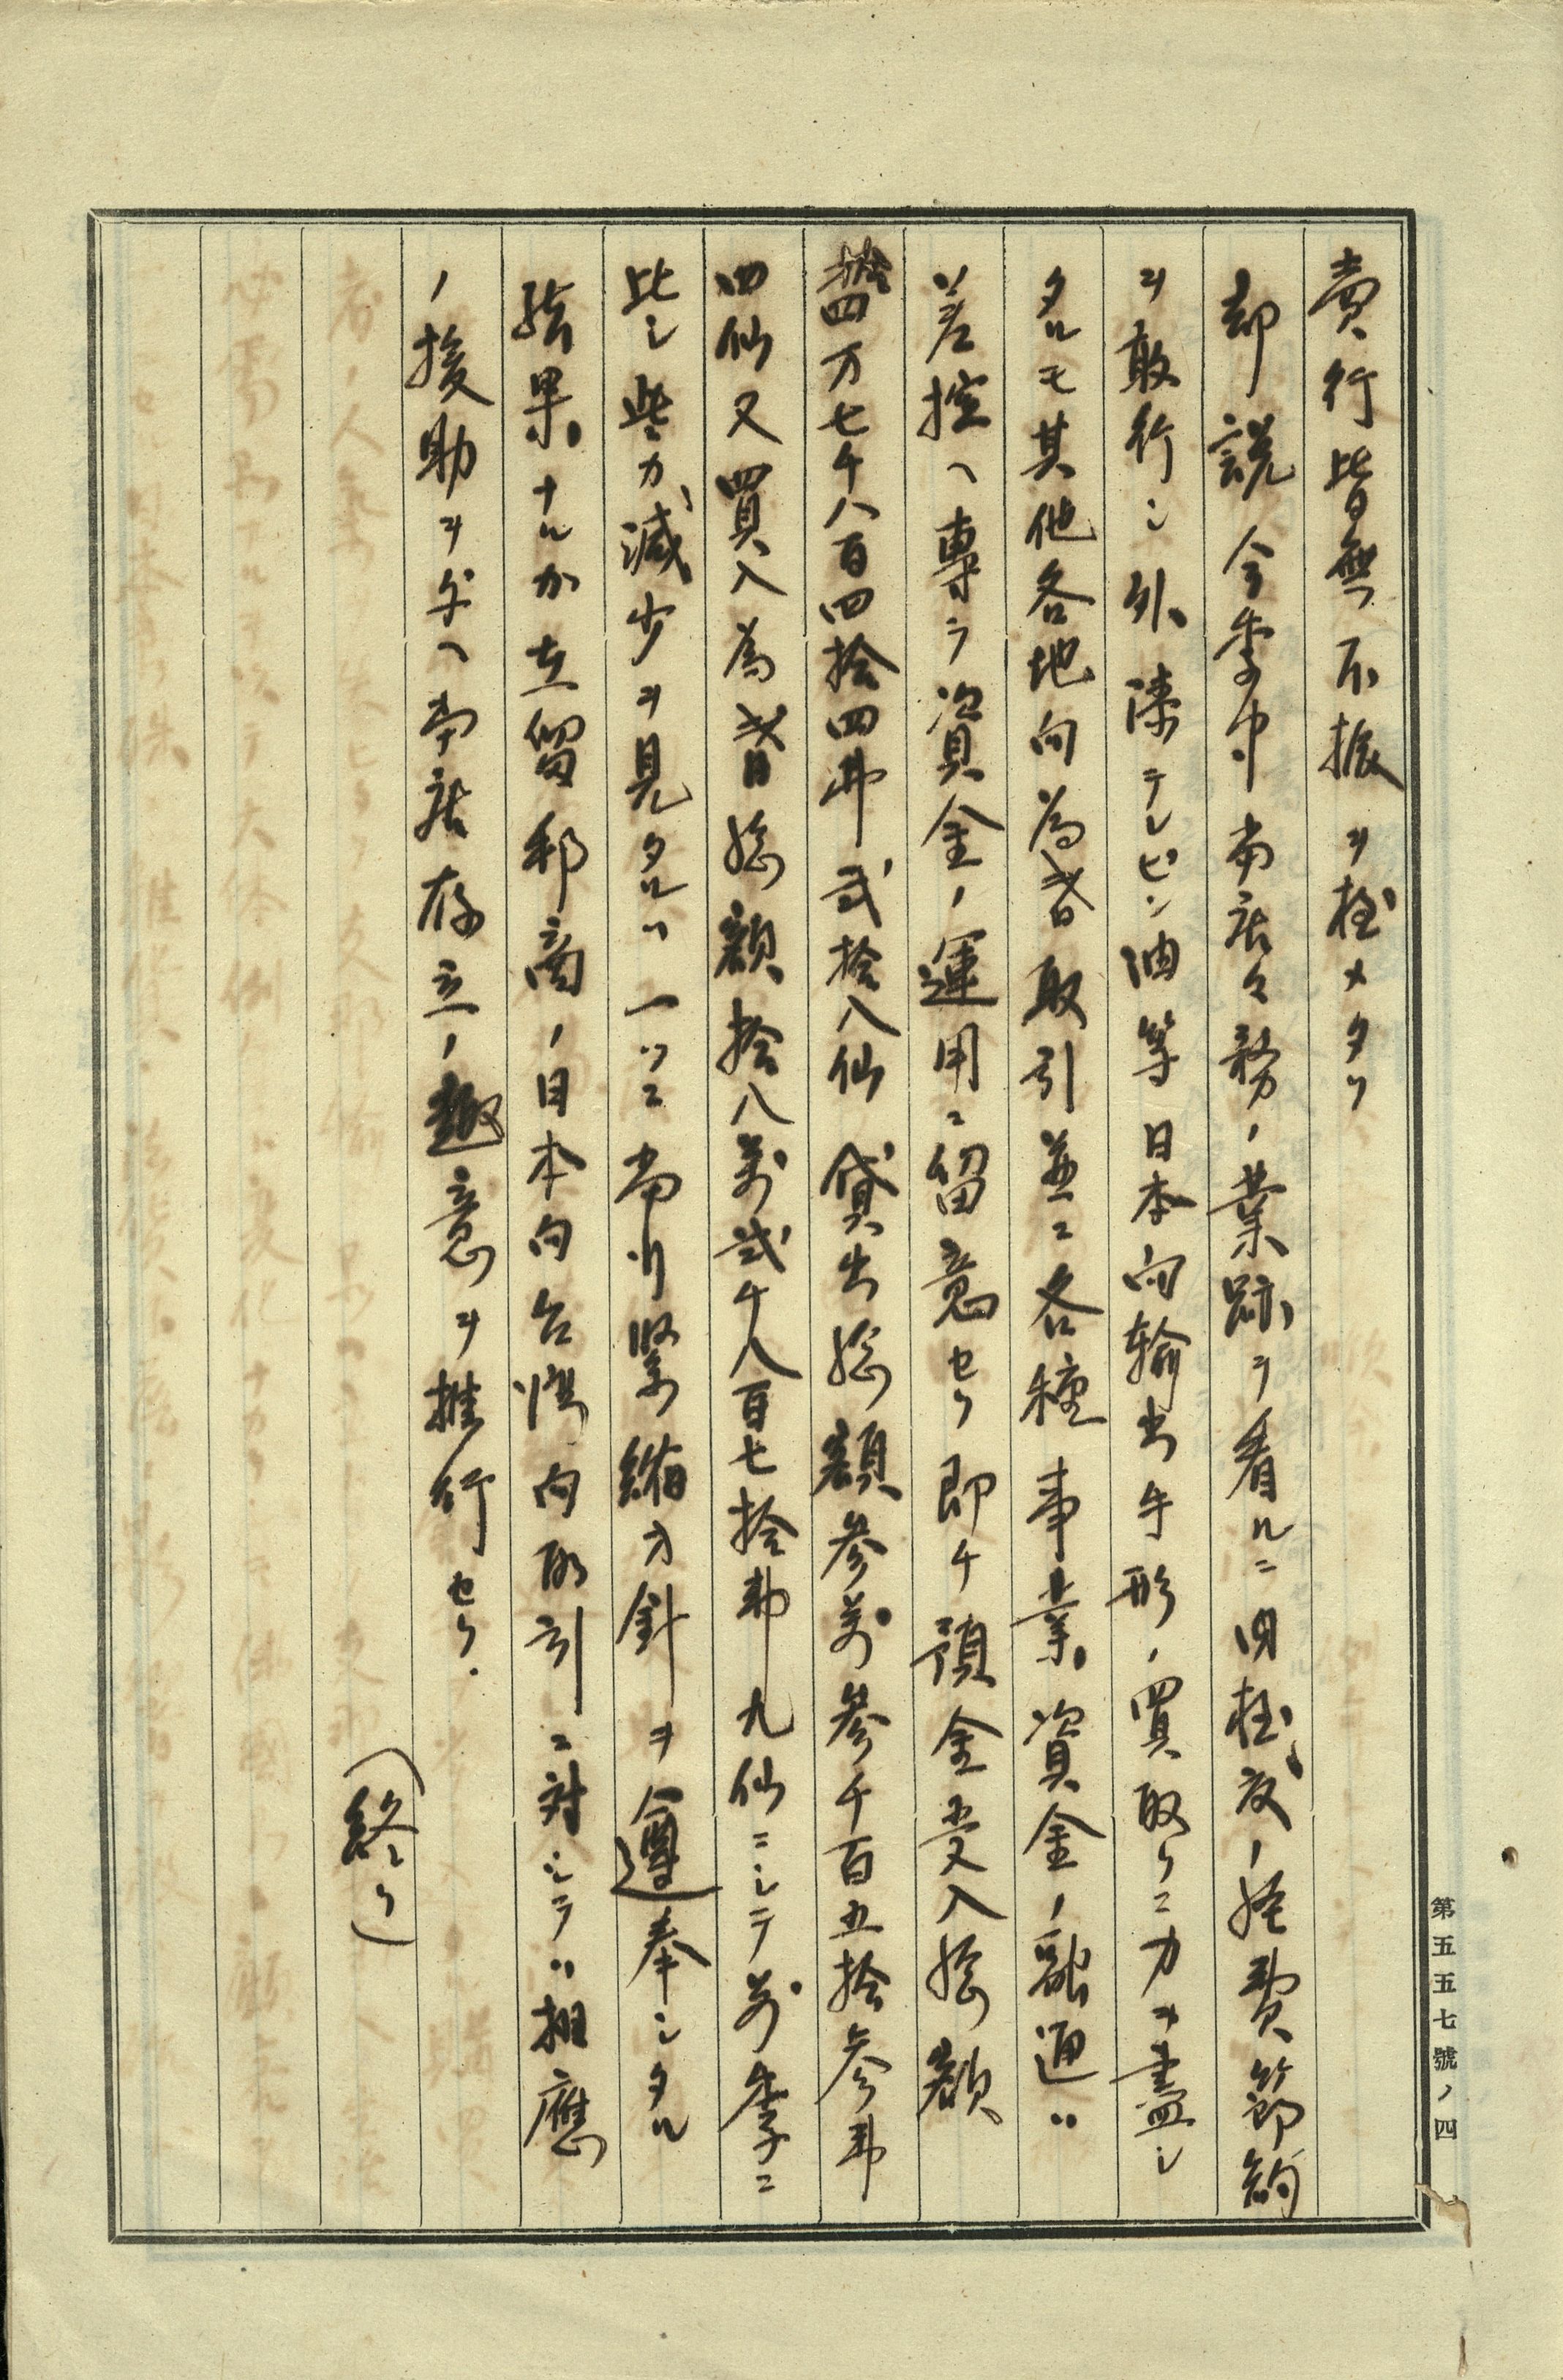 賣行皆無不振ヲ極メタリ
却說今季中当店々務ノ業跡ヲ看ルニ内極度ノ経費節約
ヲ敢行シ外漆テレピン油等日本向輸出手形ノ買取リニ力ヲ盡シ
タルモ其他各地向為替取引並ニ各種事業資金ノ融通ハ
差控ヘ專ラ資金ノ運用ニ留意セリ即チ預金受入總額
四万七千八百四拾四弗弐拾八仙貸出總額参萬参千百五拾参弗
四仙又買入為替總額拾八萬弐千八百七拾弗九仙ニシテ前季ニ
比シ些カ減少ヲ見タルハ一ツニ当行緊縮方針ヲ遵奉シタル
結果ナルカ在留邦商ノ日本向台湾向取引ニ対シテハ相應
ノ援助ヲ与ヘ当店存立ノ趣意ヲ推行セリ.
(終リ)
第五五七號ノ四